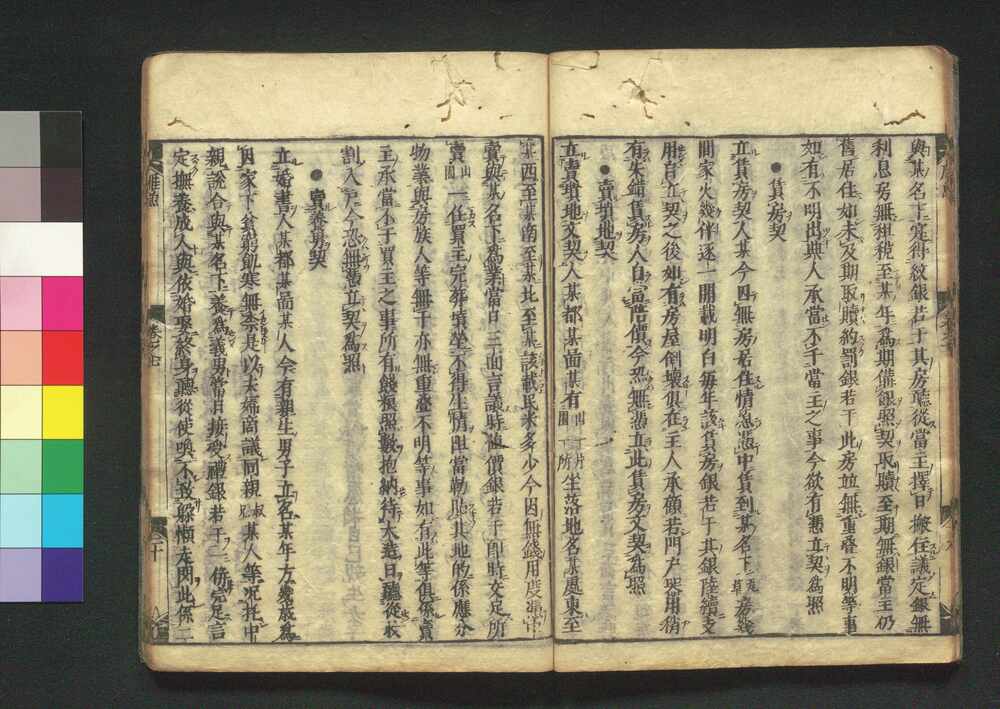 與某名下寔得紋銀若干其房聽從當主擇日搬住議定銀無
利息房無租稅至某年為期備銀照契取贖至期無銀當主仍
舊居住如未及期取贖約罰銀若干此房並無重疊不明等事
如有不明出典人承當不干當主之事今欲有憑立契為照
●賃房契
立賃房契人某今因無房居住情愿憑中賃到某名下瓦草房幾
間家火幾件逐一開載明白每年該賃房銀若干其銀陸續支
用自立契之後如有房屋倒壞俱在主人承顧若門戶家用稍
有失錯賃房人自當賠償今恐無憑立此賃房文契為照
●賣墳地契
立賣墳地文契人某都某啚某有山一片園一所坐落地名某處東至
某西至某南至某北至某該載民米多少今因無錢用度憑中
賣與某名下為業當日三面言議時值價銀若干即時交足所
賣山園一任買主完葬墳塋不得生情阻當勒貼其地的係應分
物業與房族人等無干亦無重疊不明等事如有此等俱係賣
主承當不干買主之事所有錢糧照數抱納待大造日聽從收
割入戶今恐無憑立契為照
●賣養男契
立婚書人某都某啚某人今有親生男子立名某年方幾歲為
因家下貧窮飢寒無奈是以夫婦商議同親叔兄某人等況托中
親說合與某名下養為議男當日接受禮銀若干二併完足言
定撫養成人與依婚娶終身聽從使喚不致躲懶走閃此係二
卷之七
三十